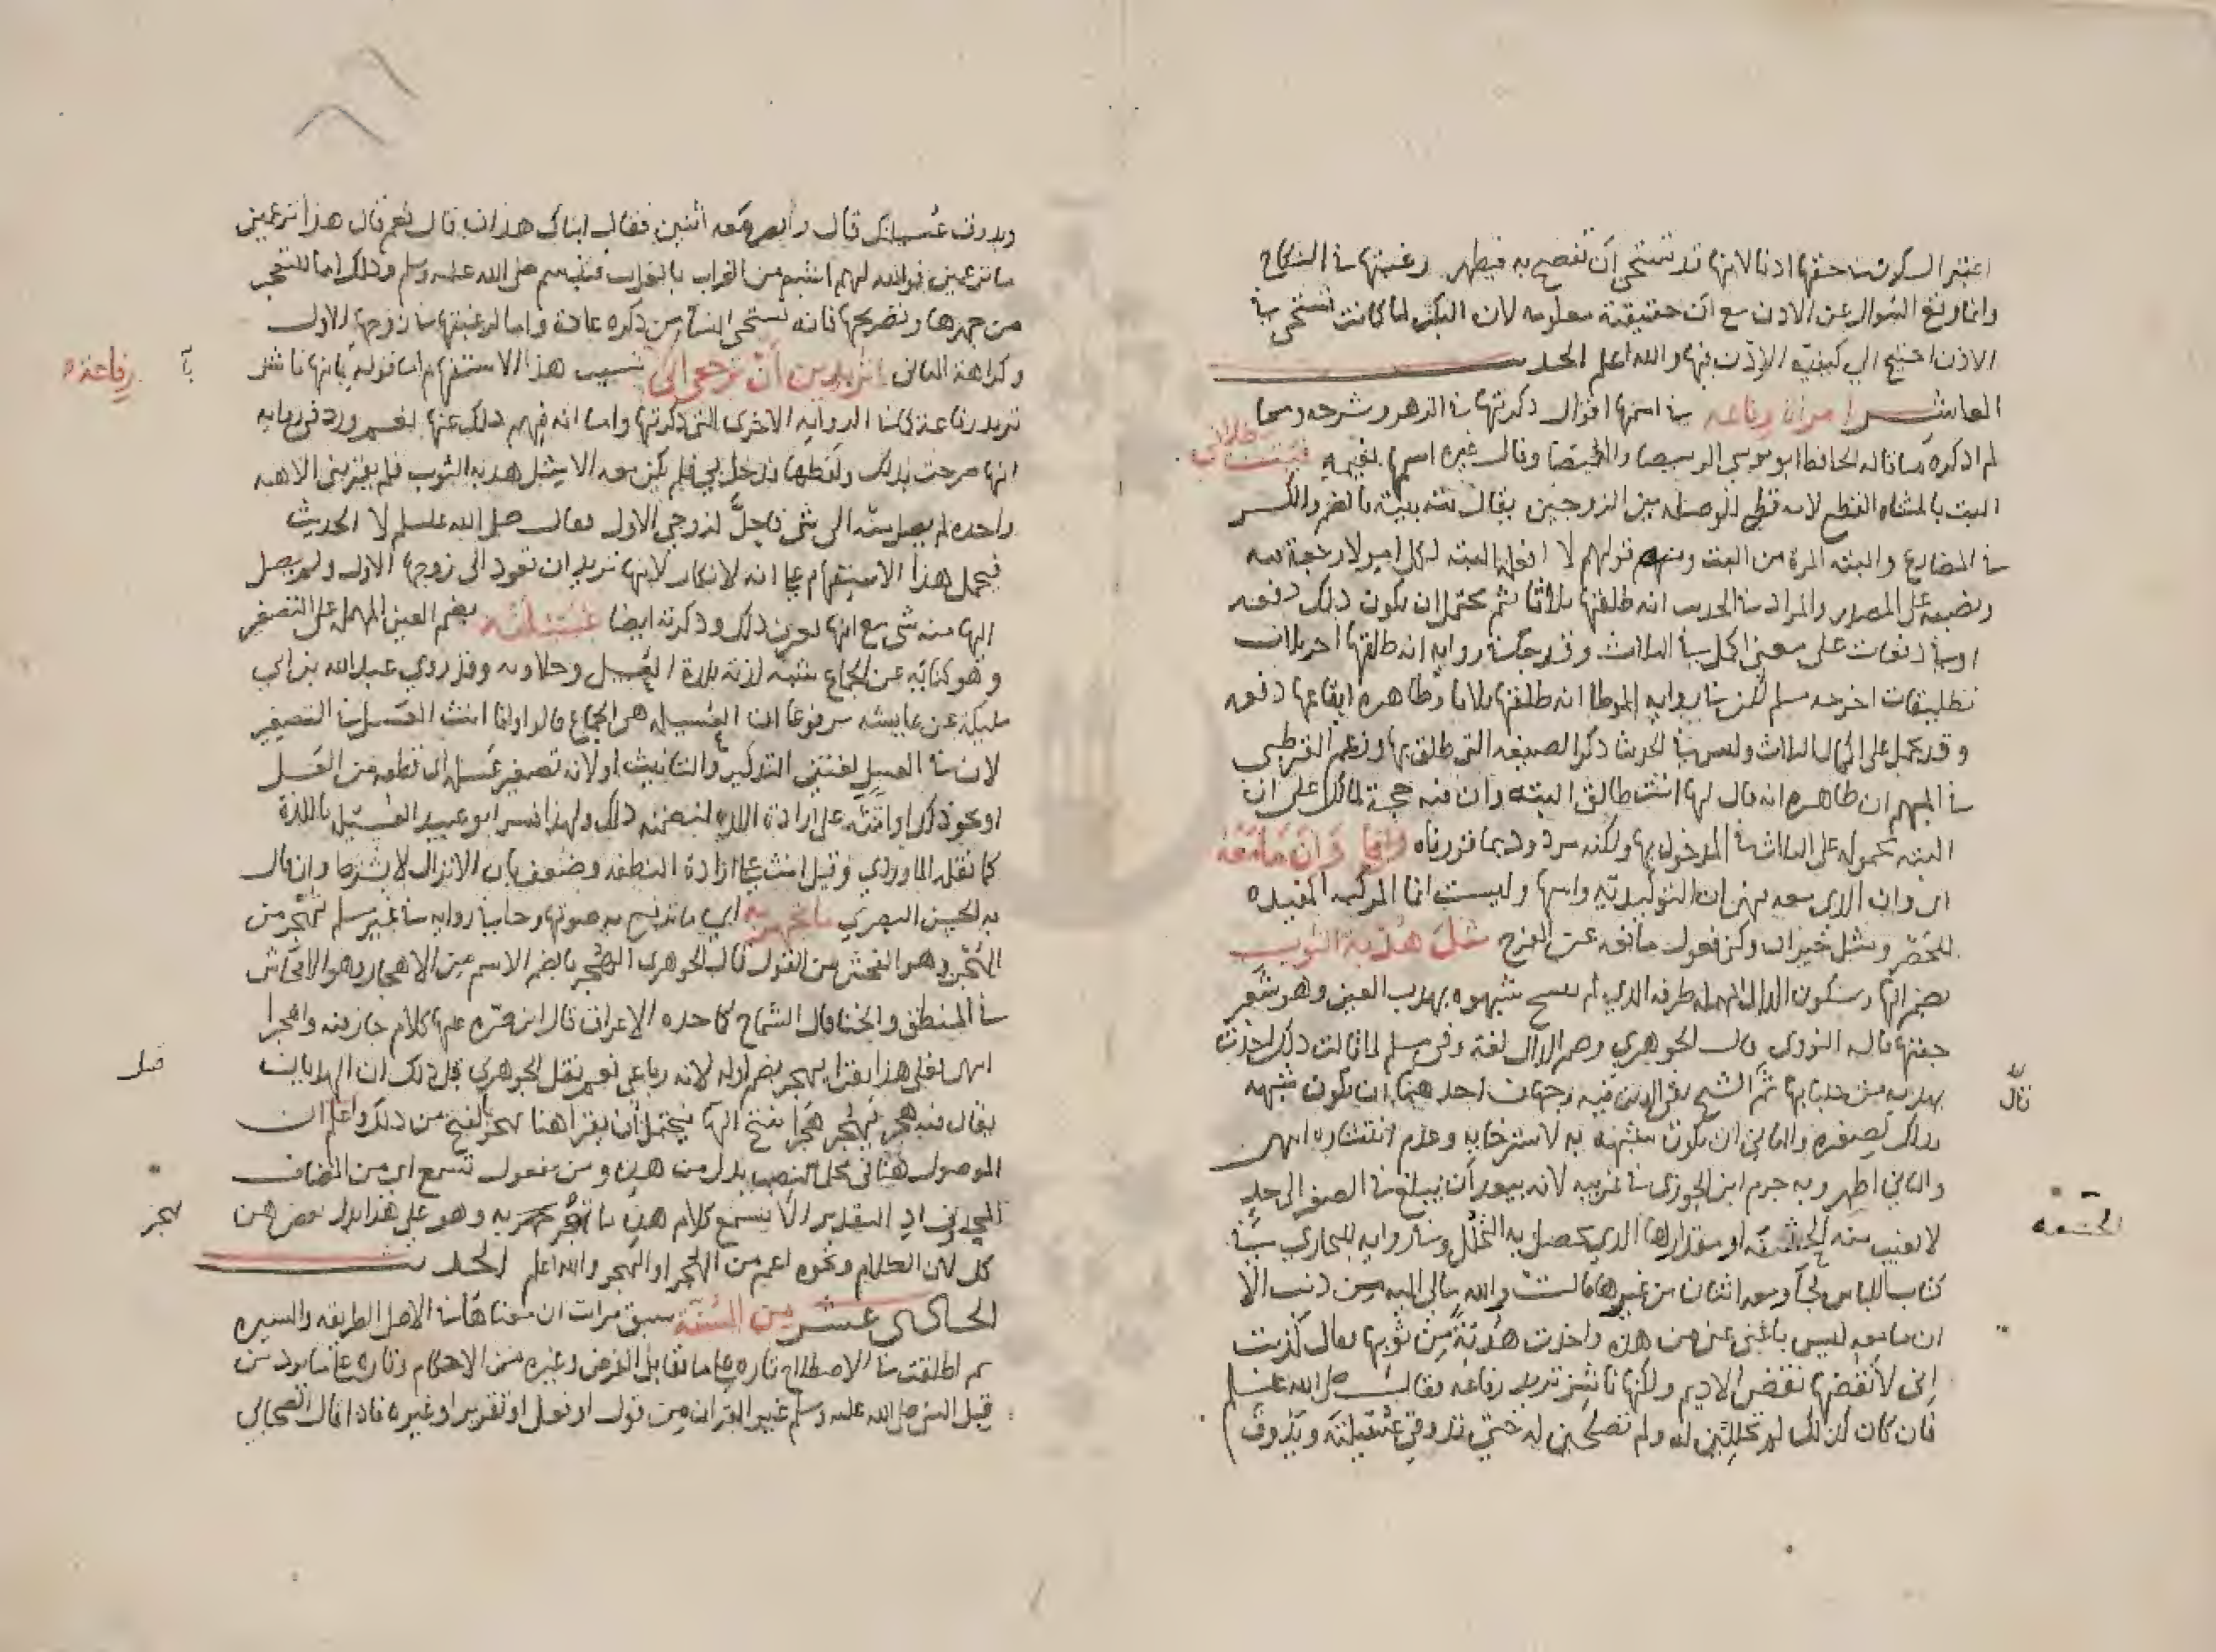 اعتبر السكوت في حقها اذنا لانها قد تستحي ان تفصح به فيظهر رغبتها في النكاح
وانما وقع السوال عن الاذن مع ان حقيقته معلومه لان البكر لما كانت تستحي في
الاذن احتيج الي كيفية الاذن فيها والله اعلم الحديث
العاشر امراة رفاعه في اسمها اقوال ذكرتها في الزهر وشرحه ومما
لم اذكره ما قاله الحافظ ابو موسي وقال غيره اسمها تميمه فبت طلاقي
البت بالمثناه القطع لانه قطع الوصله بين الزوجين يقال بته يبته بالضم والكسر
في المضارع والبته المرة من البت ومنه قولهم لا افعله البته لكل امر لا رجعة فيه
ونصبه على المصدر والمراد في الحديث انه طلقها ثلاثا ثم يحتمل ان يكون ذلك دفعه
او في دفعات على معنى اكمل في الثلاث وقد جا في رواية انه طلقها اخر ثلاث
تطليقات اخرجه مسلم لكن في رواية الموطا انه طلقها ثلاثا وظاهره ايقاعها دفعه
وقد يحمل على اكمال الثلاث وليس في الحديث ذكر الصيغه التي طلق بها وزعم القرطبي
في المفهم ان ظاهره انه قال لها انت طالق البته وان فيه حجة لمالك على ان
البته محموله على الثلاث في المدخول بها ولكنه مردود بما قررناه وانما وان ما معه
اي وان الذي معه فهي ان التوكيديه واسمها وليست انما المركبه المفيده
للحصر ومثل خبران وكني بقوله ما معه عن الفرج مثل هدبة الثوب
بضم الها وسكون الدال المهمله طرفه الذي لم ينسج شبهوه بهدب العين وهو شعر
جفنها قاله النووي قال الجوهري وضم الدال لغة وفي مسلم لما قالت ذلك اخذت
بهدبه من جلبابها ثم الشيخ تقي الدين فيه وجهان احدهما ان يكون شبهه قال
بذلك لصغره والثاني ان يكون شبهته به لاسترخايه وعدم انتشاره انتهى
والثاني اظهر وبه جزم ابن الجوزي في غريبه لانه يبعد ان يبلغ في الصغر الى حد
لا يغيب منه الحشفه او مقدارها الذي يحصل به التحلل وفي رواية للبخاري في الحشفه
كتاب اللباس فجا ومعه اثنان من غيرها قالت والله مالي اليه من ذنب الا
ان ما معه ليس باغنى عني من هذه واخذت هدبة من ثوبها فقال كذبت
اني لانفضها نفض الاديم ولكنها ناشز تريد رفاعه فقال صلى الله عليه وسلم
فان كان ذلك لم تحلين له ولم تصلحين له حتى تذوقي عسيلته ويذوق
ويذوق عسيلتك قال وابصر معه اثنين فقال ابناك هذان قال نعم قال هذا تزعمين
ما تزعمين فوالله لهم اشبه من الغراب بالغراب فتبسم صلى الله عليه وسلم وذلك اما للتعجب
من جهرها وتصريحها فانه يستحي النسا من ذكره عادة واما لرغبتها في زوجها الاول
وكراهة الثاني اتريدين ان ترجعي الى سبب هذا الاستفهام اما قوله بانها ناشز رفاعة
تريد رفاعة كما في الروايه الاخرى التي ذكرتها واما انه فهم ذلك عنها نعم ورد في روايه
انها صرحت بذلك ولفظها فدخل بي فلم يكن معه الا مثل هدبه الثوب فلم يقربني الا هنه
واحده لم يصل منه الى شي فاحل لزوجي الاول فقال صلى الله عليه وسلم لا الحديث
فيحمل هذا الاستفهام على انه لانكار لانها تريد ان تعود الى زوجها الاول ولم يصل
اليها منه شي مع انها تعرف ذلك وذكرته ايضا عسيلته بضم العين المهمله على التصغير
وهو كنايه عن الجماع شبه لذته بلذة العسل وحلاوته وقد روي عبد الله بن ابي
مليكة عن عايشه مرفوعا ان العسيله هي الجماع قالوا وانما انث العسل في التصغير
لان في العسل لغتين التذكير والتانيث او لانه تصغير عسله اي قطعه من العسل
او نحو ذلك او انثه على ارادة اللذه لتضمنه ذلك ولهذا فسر ابو عبيد العسيله باللذة
كما نقله الماوردي وقيل انث على ارادة النطفه وضعف بان الانزال لا يشترط وان قال
به الحسن البصري ما تجهر به اي ما ترفع به صوتها وجا في روايه في غير مسلم تهجر من
الهجر وهو الفحش من القول قال الجوهري الهجر بالضم الاسم من الاهجار وهو الافحاش
في المنطق والخنا قال الشماخ كما جده الاعراق قال ابن ضره عليها كلام جاز فيه واهجرا
انتهى فعلى هذا يقرا يهجر بضم اوله لانه رباعي نعم نقل الجوهري قبل ذلك ان الهذيان قبل
يقال فيه هجر يهجر هجرا بفتح الها فيحتمل ان يقرا هنا تهجر بالفتح من ذلك واعلم ان
الموصول هنا في محل نصب بدل من هذه ومن مفعول تسمع اي من المضاف
المحذوف اذ التقدير الا تسمع كلام هذه ما تجهر به وهو على هذا بدل بعض من تهجر
كل لان الكلام ونحوه اعم من الجهر او الهجر والله اعلم الحديث
الحادي عشر من السنة سبق مرات ان معناها في الاصل الطريقه والسيره
ثم اطلقت في الاصطلاح تاره على ما يقابل الفرض وغيره من الاحكام وتاره على ما يرد من
قبل النبي صلى الله عليه وسلم غير القران من قول او فعل او تقرير او غيره فاذا قال الصحابي